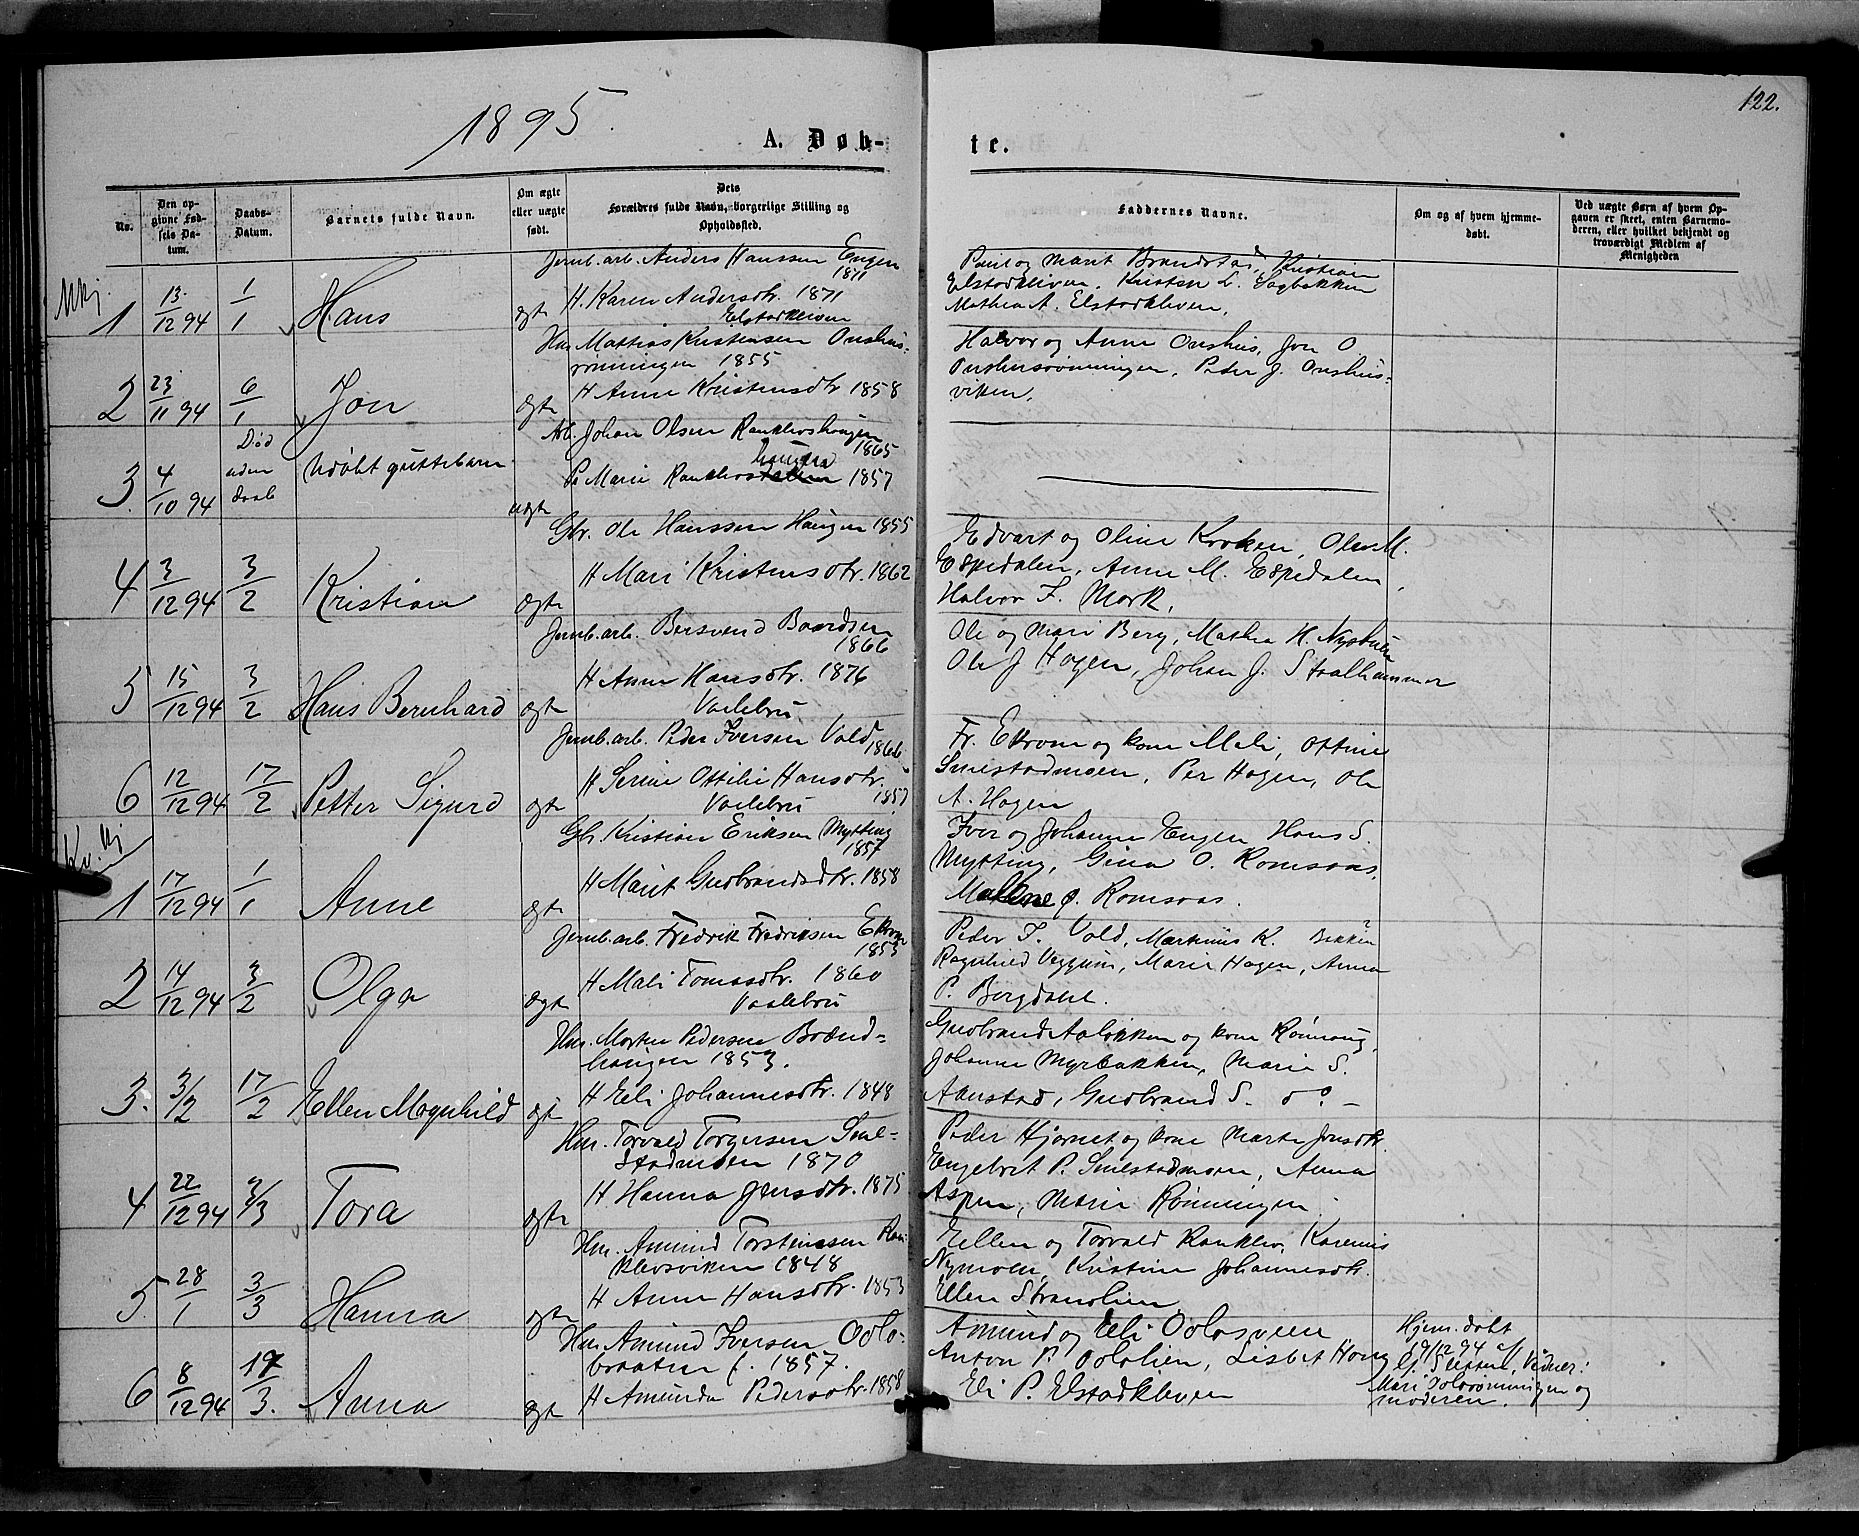 122.
1895.
A. Døb-
te.
No.
Den op-
givne Fød-
sels Da-
tum.
Daabs-
Datum.
Barnets fulde Navn.
Om ægte
eller uægte
født.
Dets
Forældres fulde Navn, borgerlige Stilling og
Opholdssted.
Faddernes Navne.
Om og af hvem hjemme-
døbt.
Ved uægte Børn af hvem Op-
gaven er skeet, enten Barnemo-
deren, eller hvilket bekjendt og
troværdigt Medlem af
Menigheden
Mkj.
1 13/12 94 1/1 Hans ægte
Jernb.arb. Anders Hanssen Engen
1871
H. Karen Andersdtr. 1871
Elstadkleven
Paul og Marit Brandstad, Kristian
Elstadkleven, Kristen L. Sagbakken
Mathea A. Elstadkleven.
2 23/11 94 6/1 Jon ægte
Hm. Mattias Kristensen Onshus-
rønningen 1855
H Anne Kristensdtr 1858
Halvor og Anne Onshus, Jon O
Onshusrønningen, Peder J. Onshus-
viken.
3. 4/10 94 Død
uden
daab
Udøbt guttebarn uægte
Arb. Johan Olsen Ranklevshaugen
1865
haugen
P. Marie Ranklevs 1857
4 3/12 94 3/2 Kristian ægte
Gbr. Ole Hanssen Haugen 1855
H Mari Kristensdtr. 1862
Edvart og Oline Kroken, Ole M.
Espedalen, Anne M. Espedalen,
Halvor F. Mork.
5 15/12 94 3/2 Hans Bernhard ægte
Jernb.arb. Besvend Baardsen
1866
H Anne Hansdtr. 1876
Vaalebru
Ole og Mari Berg, Mathea H. Nystuen
Ole J Hagen, Johan J. Staalhammer
6 12/12 94 17/2 Petter Sigurd ægte
Jernb.arb. Peder Iversen Vold
1866
H Serine Ottilie Hansdtr.
1857
Vaalebru
Fr. Ekrom og kone Mali, Ottine
Smestadmoen, Per Hagen, Ole
A. Hagen
Kv. kj
1 17/12 94 1/1 Anne ægte
Gbr Kristian Eriksen Mytting
1857
H Marit Gudbrandsdtr. 1858
Iver og Johanne Engen Hans S.
Mytting, Gina O. Romsaas,
Mathne O. Romsaas.
2 14/12 94 3/2 Olga ægte
Jernb.arb. Fredrik Fredriksen Ekrom
1853
H Mali Tomasdtr. 1860
Vaalebru
Peder I. Vold, Martinus K. Bekken
Ragnhild Veggum, Marie Hagen, Anna
P. Bergdahl.
3. 3/2 17/2 Ellen Magnhild ægte
Hm. Morten Pedersen Brænd-
haugen 1853.
H Eli Johannesdtr. 1848
Gudbrand Aaløkken og kone Rønnaug,
Johanne Myrbakken, Marie S.
Aanstad, Gudbrand S. do –
4 22/12 94 3/3 Tora ægte
Hm. Torvald Torgersen Sme-
stadmoen 1870
H. Hanna Jensdtr. 1875
Peder Hjornet og kone Marte Jonsdtr.
Engebret P. Smestadmoen, Anna
Aspen, Marie Rønningen.
5. 28/1 3/3 Hanna ægte
Hm. Amund Torstensen Ran-
klevsviken 1848
H Anne Hansdtr. 1853
Ellen og Torvald Ranklev, Karenius
Nymoen, Kristine Johannesdtr.
Ellen Strandlien
6 8/12 94 17/3. Anna ægte
Hm Amund Iversen Odlo-
braaten f. 1857.
H Amunda Pedersdtr. 1858
Amund og Eli Odlosveen
Anton P. Odlolien, Lisbet Haug
Eli P. Elstadkleven
Hjem. døbt
9/12 94 af
lj. Sletten, Vidner:
Mari Odlorønningen og
moderen.